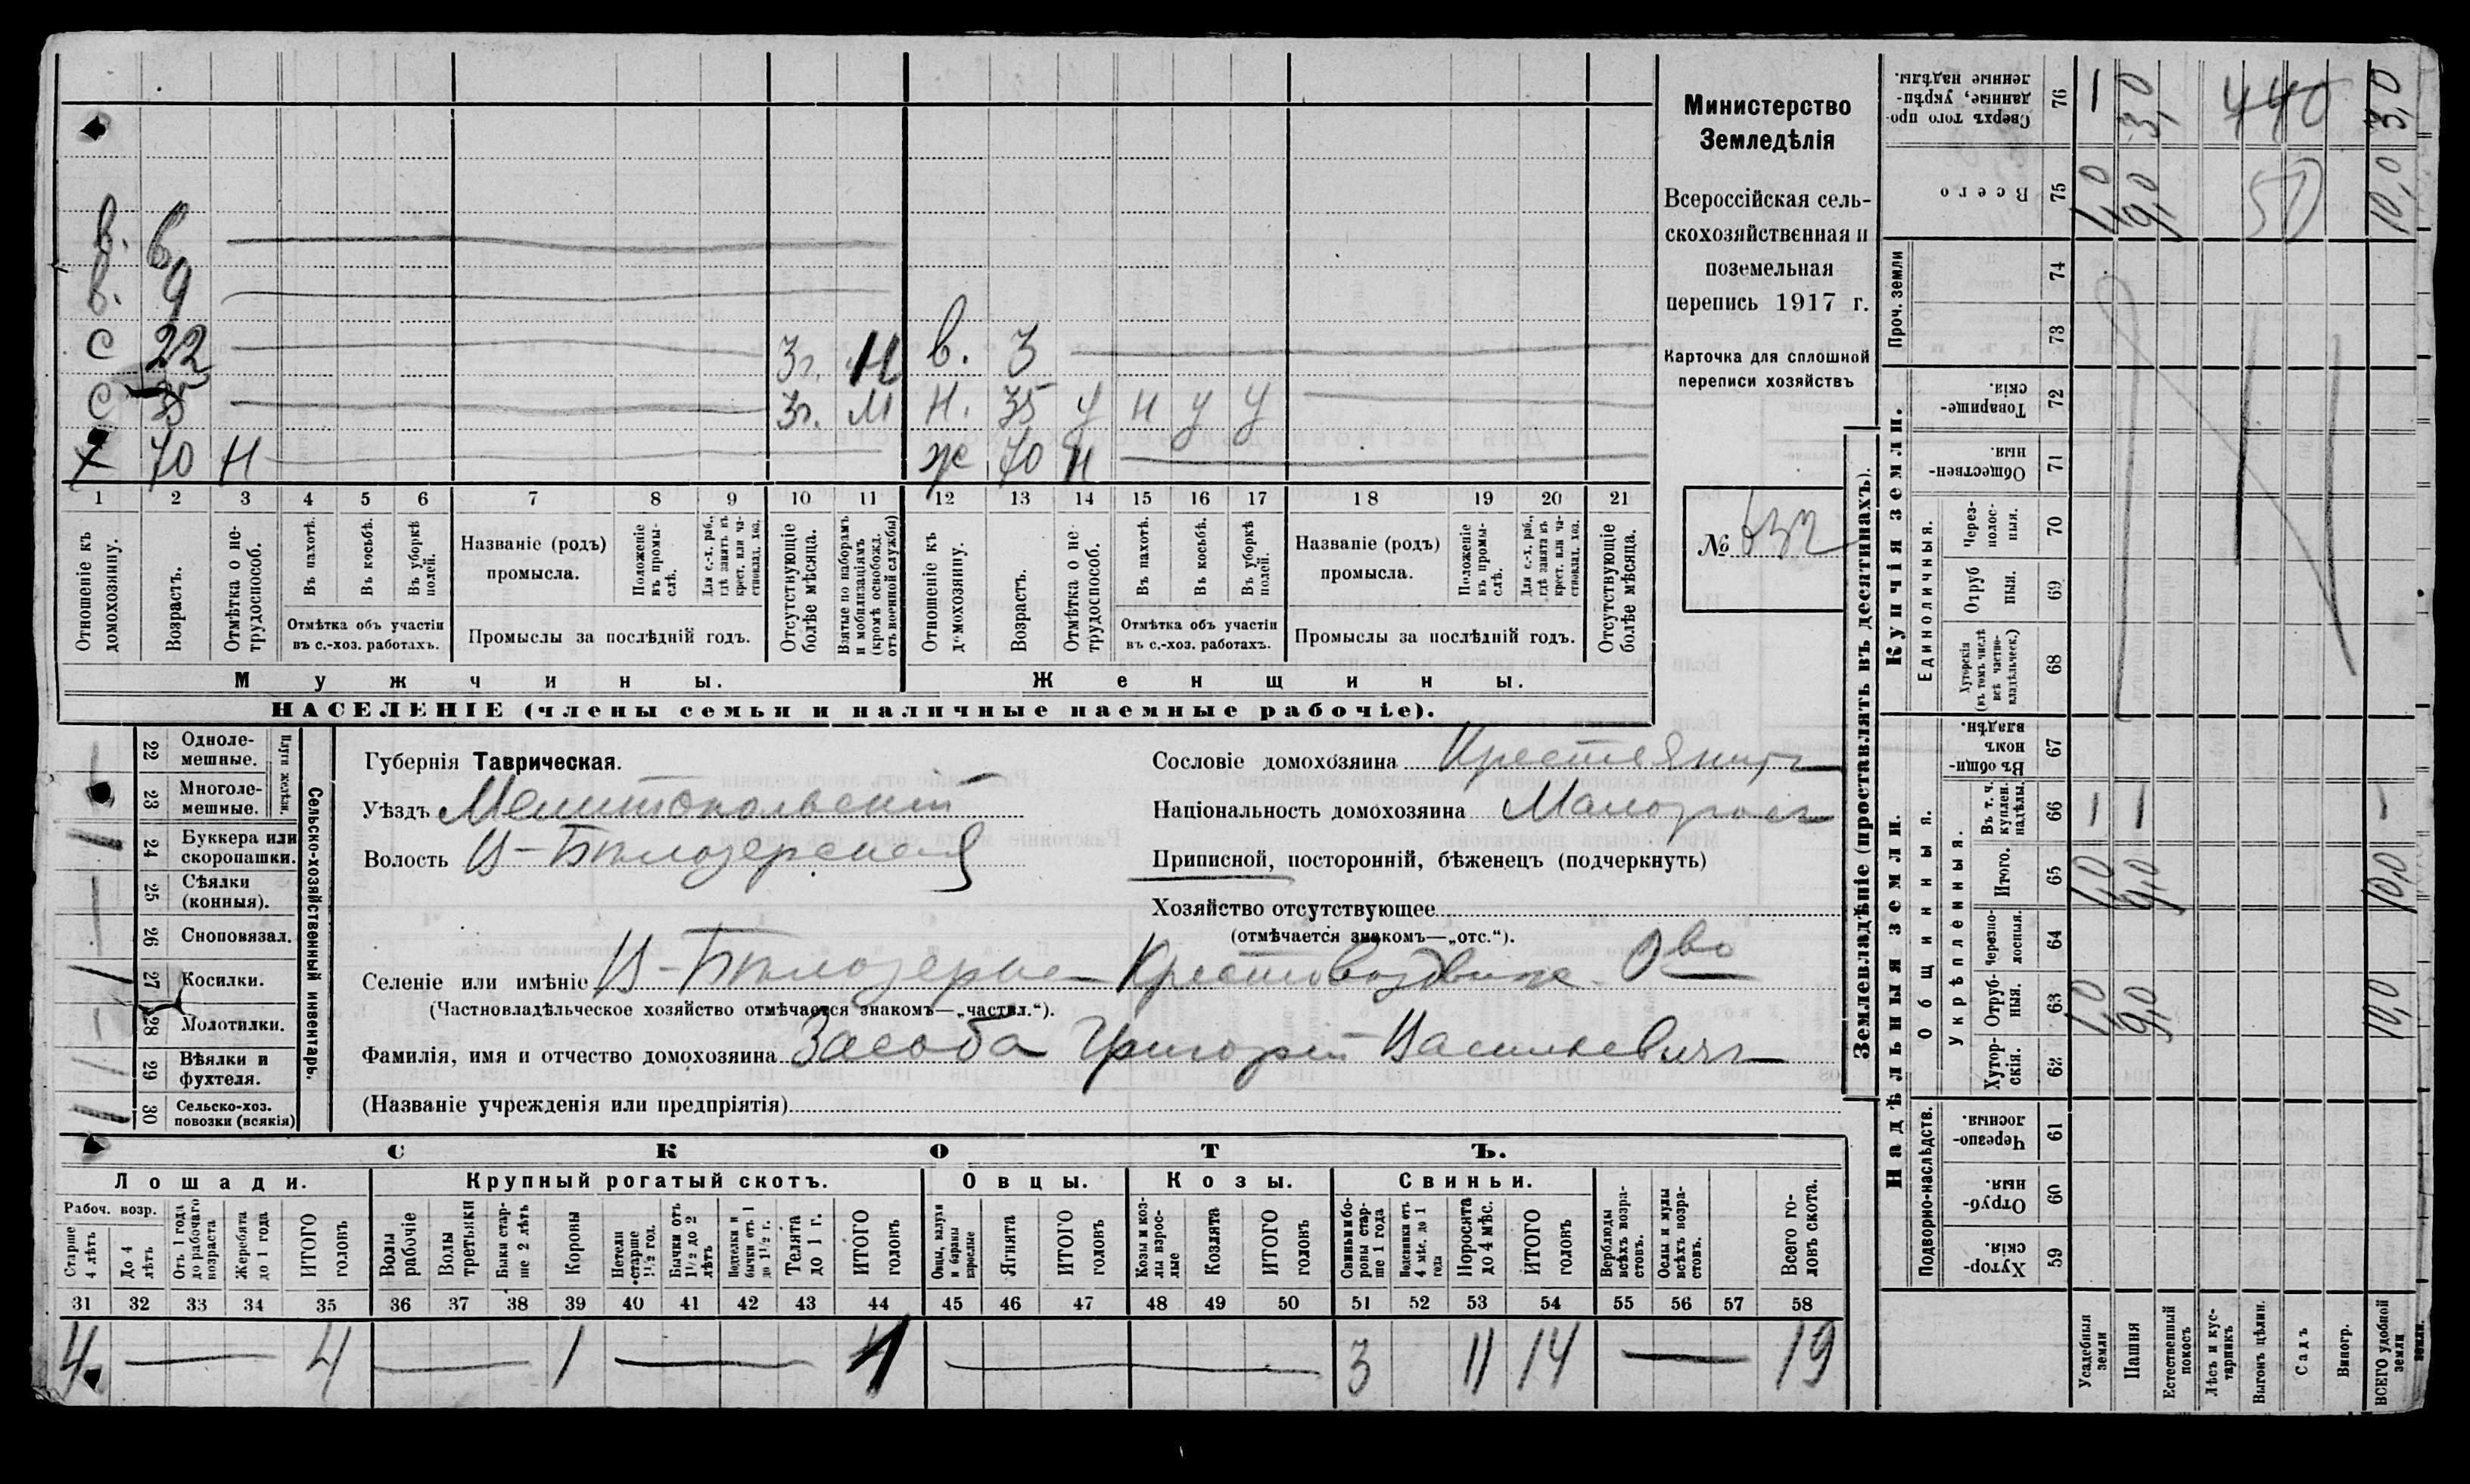 в. 6
в. 9
с 22 3г. М в. 3
с 35 3г. М н. 35 у н у у
х 70 Н ж 70 Н
1 2 3 4 5 6 7 8 9 10 11 12 13 14 15 16 17 18 19 20 21
Отношеніе къ домохозяину.
Возрастъ.
Отмѣтка о не-трудоспособ.
Въ пахотѣ.
Въ косьбѣ.
Въ уборкѣ полей.
Отмѣтка объ участіи
въ с.-хоз. работахъ.
Названіе (родъ)
промысла.
Положеніе въ промы-слѣ.
Для с.-х. раб., гдѣ занятъ въ крест. или ча-стновлад. хоз.
Промыслы за послѣдній годъ.
Отсутствующіе болѣе мѣсяца.
Взятые по наборамъ и мобилизаціямъ (кромѣ освобожд. отъ военной службы)
Отношеніе къ домохозяину.
Возрастъ.
Отмѣтка о не-трудоспособ.
Въ пахотѣ.
Въ косьбѣ.
Въ уборкѣ полей.
Отмѣтка объ участіи
въ с.-хоз. работахъ.
Названіе (родъ)
промысла.
Положеніе въ промы-слѣ.
Для с.-х. раб., гдѣ занята въ крест. или ча-стновлад. хоз.
Промыслы за послѣдній годъ.
Отсутствующіе болѣе мѣсяца.
Мужчины. Женщины.
НАСЕЛЕНІЕ (члены семьи и наличные наемные рабочіе).
Министерство
Земледѣлія
Всероссійская сель-
скохозяйственная и
поземельная
перепись 1917 г.
Карточка для сплошной
переписи хозяйствъ
№ 632
22 Одноле-мешные.
23 Многоле-мешные.
Плуги желѣзн.
24 Буккера или скоропашки.
25 Сѣялки (конныя).
26 Сноповязал.
27 Косилки.
28 Молотилки.
29 Вѣялки и фухтеля.
30 Сельско-хоз. повозки (всякія)
Сельско-хозяйственный инвентарь.
Губернія Таврическая.
Уѣздъ Мелитопольскій
Волость В-Бѣлозерская
Сословіе домохозяина Крестьянинъ
Національность домохозяина Малоросъ
Приписной, посторонній, бѣженецъ (подчеркнуть)
Хозяйство отсутствующее
(отмѣчается знакомъ—„отс.“).
Селеніе или имѣніе В-Бѣлозерье Крестовоздвиж. О-во
(Частновладѣльческое хозяйство отмѣчается знакомъ—„частвл.“).
Фамилія, имя и отчество домохозяина Засоба Григорій Васильевичъ
(Названіе учрежденія или предпріятія)
СКОТЪ.
Лошади. Крупный рогатый скотъ. Овцы. Козы. Свиньи.
Рабоч. возр.
Старше 4 лѣтъ
До 4 лѣтъ
Отъ 1 года до рабочаго возраста
Жеребята до 1 года
ИТОГО головъ
Волы рабочіе
Волы третьяки
Быки стар-ше 2 лѣтъ
Коровы
Нетели старше 1½ год.
Бычки отъ 1½ до 2 лѣтъ
Подтелки и бычки отъ 1 до 1½ г.
Телята до 1 г.
ИТОГО головъ
Овцы, валухи и бараны взрослые
Ягнята
ИТОГО головъ
Козы и коз-лы взрос-лые
Козлята
ИТОГО головъ
Свиньи бо-ровы стар-ше 1 года
Подсвинки отъ 4 мѣс. до 1 года
Поросята до 4 мѣс.
ИТОГО головъ
Верблюды всѣхъ возра-стовъ.
Ослы и мулы всѣхъ возра-стовъ.
Всего го-ловъ скота.
31 32 33 34 35 36 37 38 39 40 41 42 43 44 45 46 47 48 49 50 51 52 53 54 55 56 57 58
4 4 1 1 3 11 14 19
Землевладѣніе (проставлять въ десятинахъ).
Купчія земли.
Надѣльныя земли.
Сверхъ того про-данные, укрѣп-ленные надѣлы. 76 1 3,0 440 3,0
Всего 75 1,0 9,0 50 10,0
Проч. земли 74
73
Товарище-скія. 72
Обществен-ныя. 71
Единоличныя.
Через-полос-ныя. 70
Отруб ныя. 69
Хуторскія (въ томъ числѣ всѣ частно-владѣльческ.) 68
Общинныя.
Въ общи-номъ владѣн. 67
Укрѣпленныя.
Въ т. ч. куплен. надѣлы. 66
Итого. 65 1,0 9,0 10,0
Черезпо-лосныя. 64
Отруб-ныя. 63 1,0 9,0 10,0
Хутор-скія. 62
Подворно-наслѣдств.
Черезпо-лосныя. 61
Отруб-ныя. 60
Хутор-скія. 59
Усадебныя земли
Пашня
Естественный покосъ
Лѣсъ и кус-тарникъ
Выгонъ цѣлин.
Садъ
Виногр.
ВСЕГО удобной земли